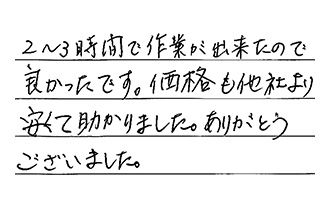 2〜3時間で作業が出来たので
良かったです。価格も他社より
安くて助かりました。ありがとう
ございました。